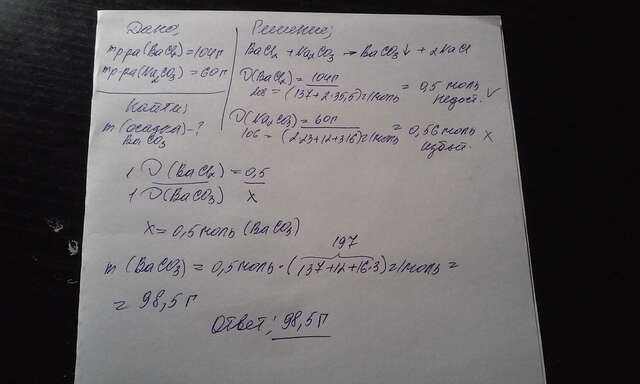 Дано:
mр-ра(BaCl₂)=104г
mр-ра(Na₂CO₃)=60г
Найти:
m(осадка)-?
BaCO₃
Решение:
BaCl₂ + Na₂CO₃ → BaCO₃↓ + 2NaCl
ν(BaCl₂) = 104г
208 = (137+2·35,5)г/моль = 0,5 моль
недост. ✓
ν(Na₂CO₃) = 60г
106 = (2·23+12+3·16)г/моль = 0,56 моль
избыт. x
1 ν(BaCl₂) = 0,5
1 ν(BaCO₃) x
x = 0,5 моль (BaCO₃)
197
m (BaCO₃) = 0,5 моль · (137+12+16·3) г/моль =
= 98,5 г
Ответ: 98,5 г